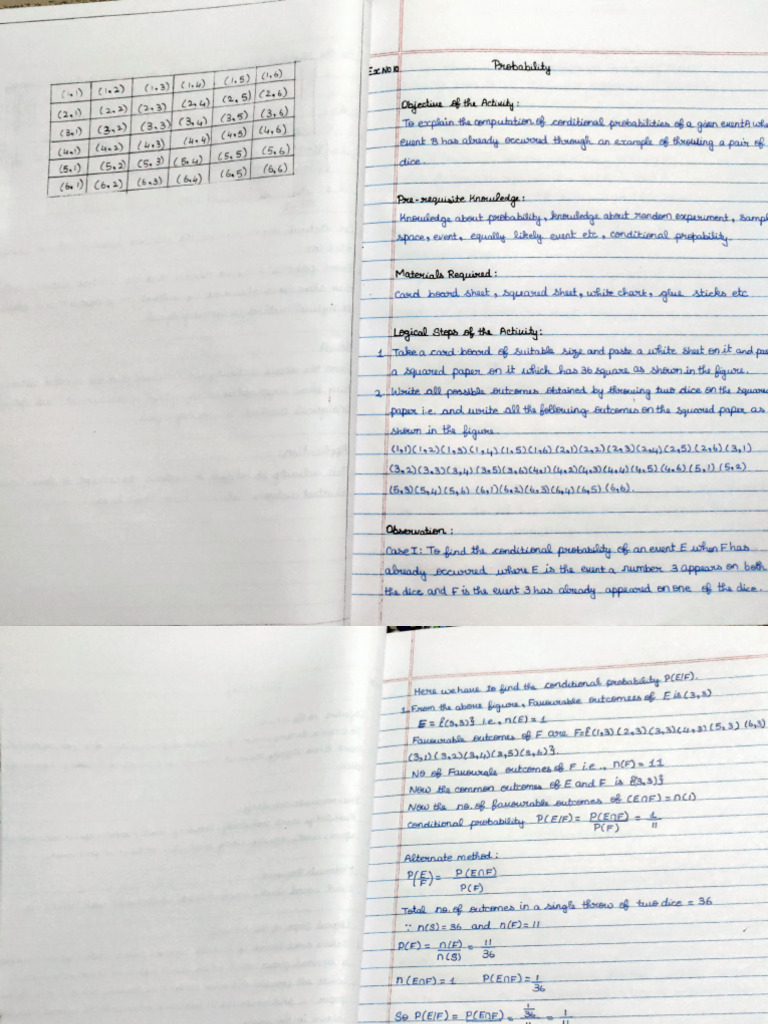 (1,1) (1,2) (1,3) (1,4) (1,5) (1,6)
(2,1) (2,2) (2,3) (2,4) (2,5) (2,6)
(3,1) (3,2) (3,3) (3,4) (3,5) (3,6)
(4,1) (4,2) (4,3) (4,4) (4,5) (4,6)
(5,1) (5,2) (5,3) (5,4) (5,5) (5,6)
(6,1) (6,2) (6,3) (6,4) (6,5) (6,6)
Ex No 10 Probability
Objective of the Activity:
To explain the computation of conditional probabilities of a given event A whe
event B has already occurred through an example of throwing a pair of
dice.
Pre-requisite Knowledge:
Knowledge about probability, knowledge about random experiment, sampl
space, event, equally likely event etc, conditional propability.
Materials Required:
Card board sheet, squared sheet, white chart, glue sticks etc
Logical Steps of the Activity:
1 Take a card board of suitable size and paste a white sheet on it and pa
a squared paper on it which has 36 square as shown in the figure.
2 Write all possible outcomes obtained by throwing two dice on the square
paper i.e. and write all the following outcomes on the squared paper as
shown in the figure.
(1,1)(1,2)(1,3)(1,4)(1,5)(1,6)(2,1)(2,2)(2,3)(2,4)(2,5)(2,6)(3,1)
(3,2)(3,3)(3,4)(3,5)(3,6)(4,1)(4,2)(4,3)(4,4)(4,5)(4,6)(5,1)(5,2)
(5,3)(5,4)(5,6)(6,1)(6,2)(6,3)(6,4)(6,5)(6,6).
Observation:
Case I: To find the conditional probability of an event E when F has
already occurred where E is the event a number 3 appears on both
the dice and F is the event 3 has already appeared on one of the dice.
Here we have to find the conditional probability P(E/F).
1. From the above figure, Favourable outcomess of E is (3,3)
E = {(3,3)} i.e., n(E) = 1
Favourable outcomes of F are F={(1,3)(2,3)(3,3)(4,3)(5,3)(6,3)
(3,1)(3,2)(3,4)(3,5)(3,6)}.
No of Favourale outcomes of F i.e., n(F) = 11
Now the common outcomes of E and F is {(3,3)}
Now the no. of favourable outcomes of (E∩F) = n(1)
Conditional probability P(E/F) = P(E∩F)/P(F) = 1/11
Alternate method:
P(E/F) = P(E∩F)/P(F)
Total no. of outcomes in a single throw of two dice = 36
∵ n(S) = 36 and n(F) = 11
P(F) = n(F)/n(S) = 11/36
n(E∩F) = 1 P(E∩F) = 1/36
So P(E/F) = P(E∩F) = 1/36 = 1/11